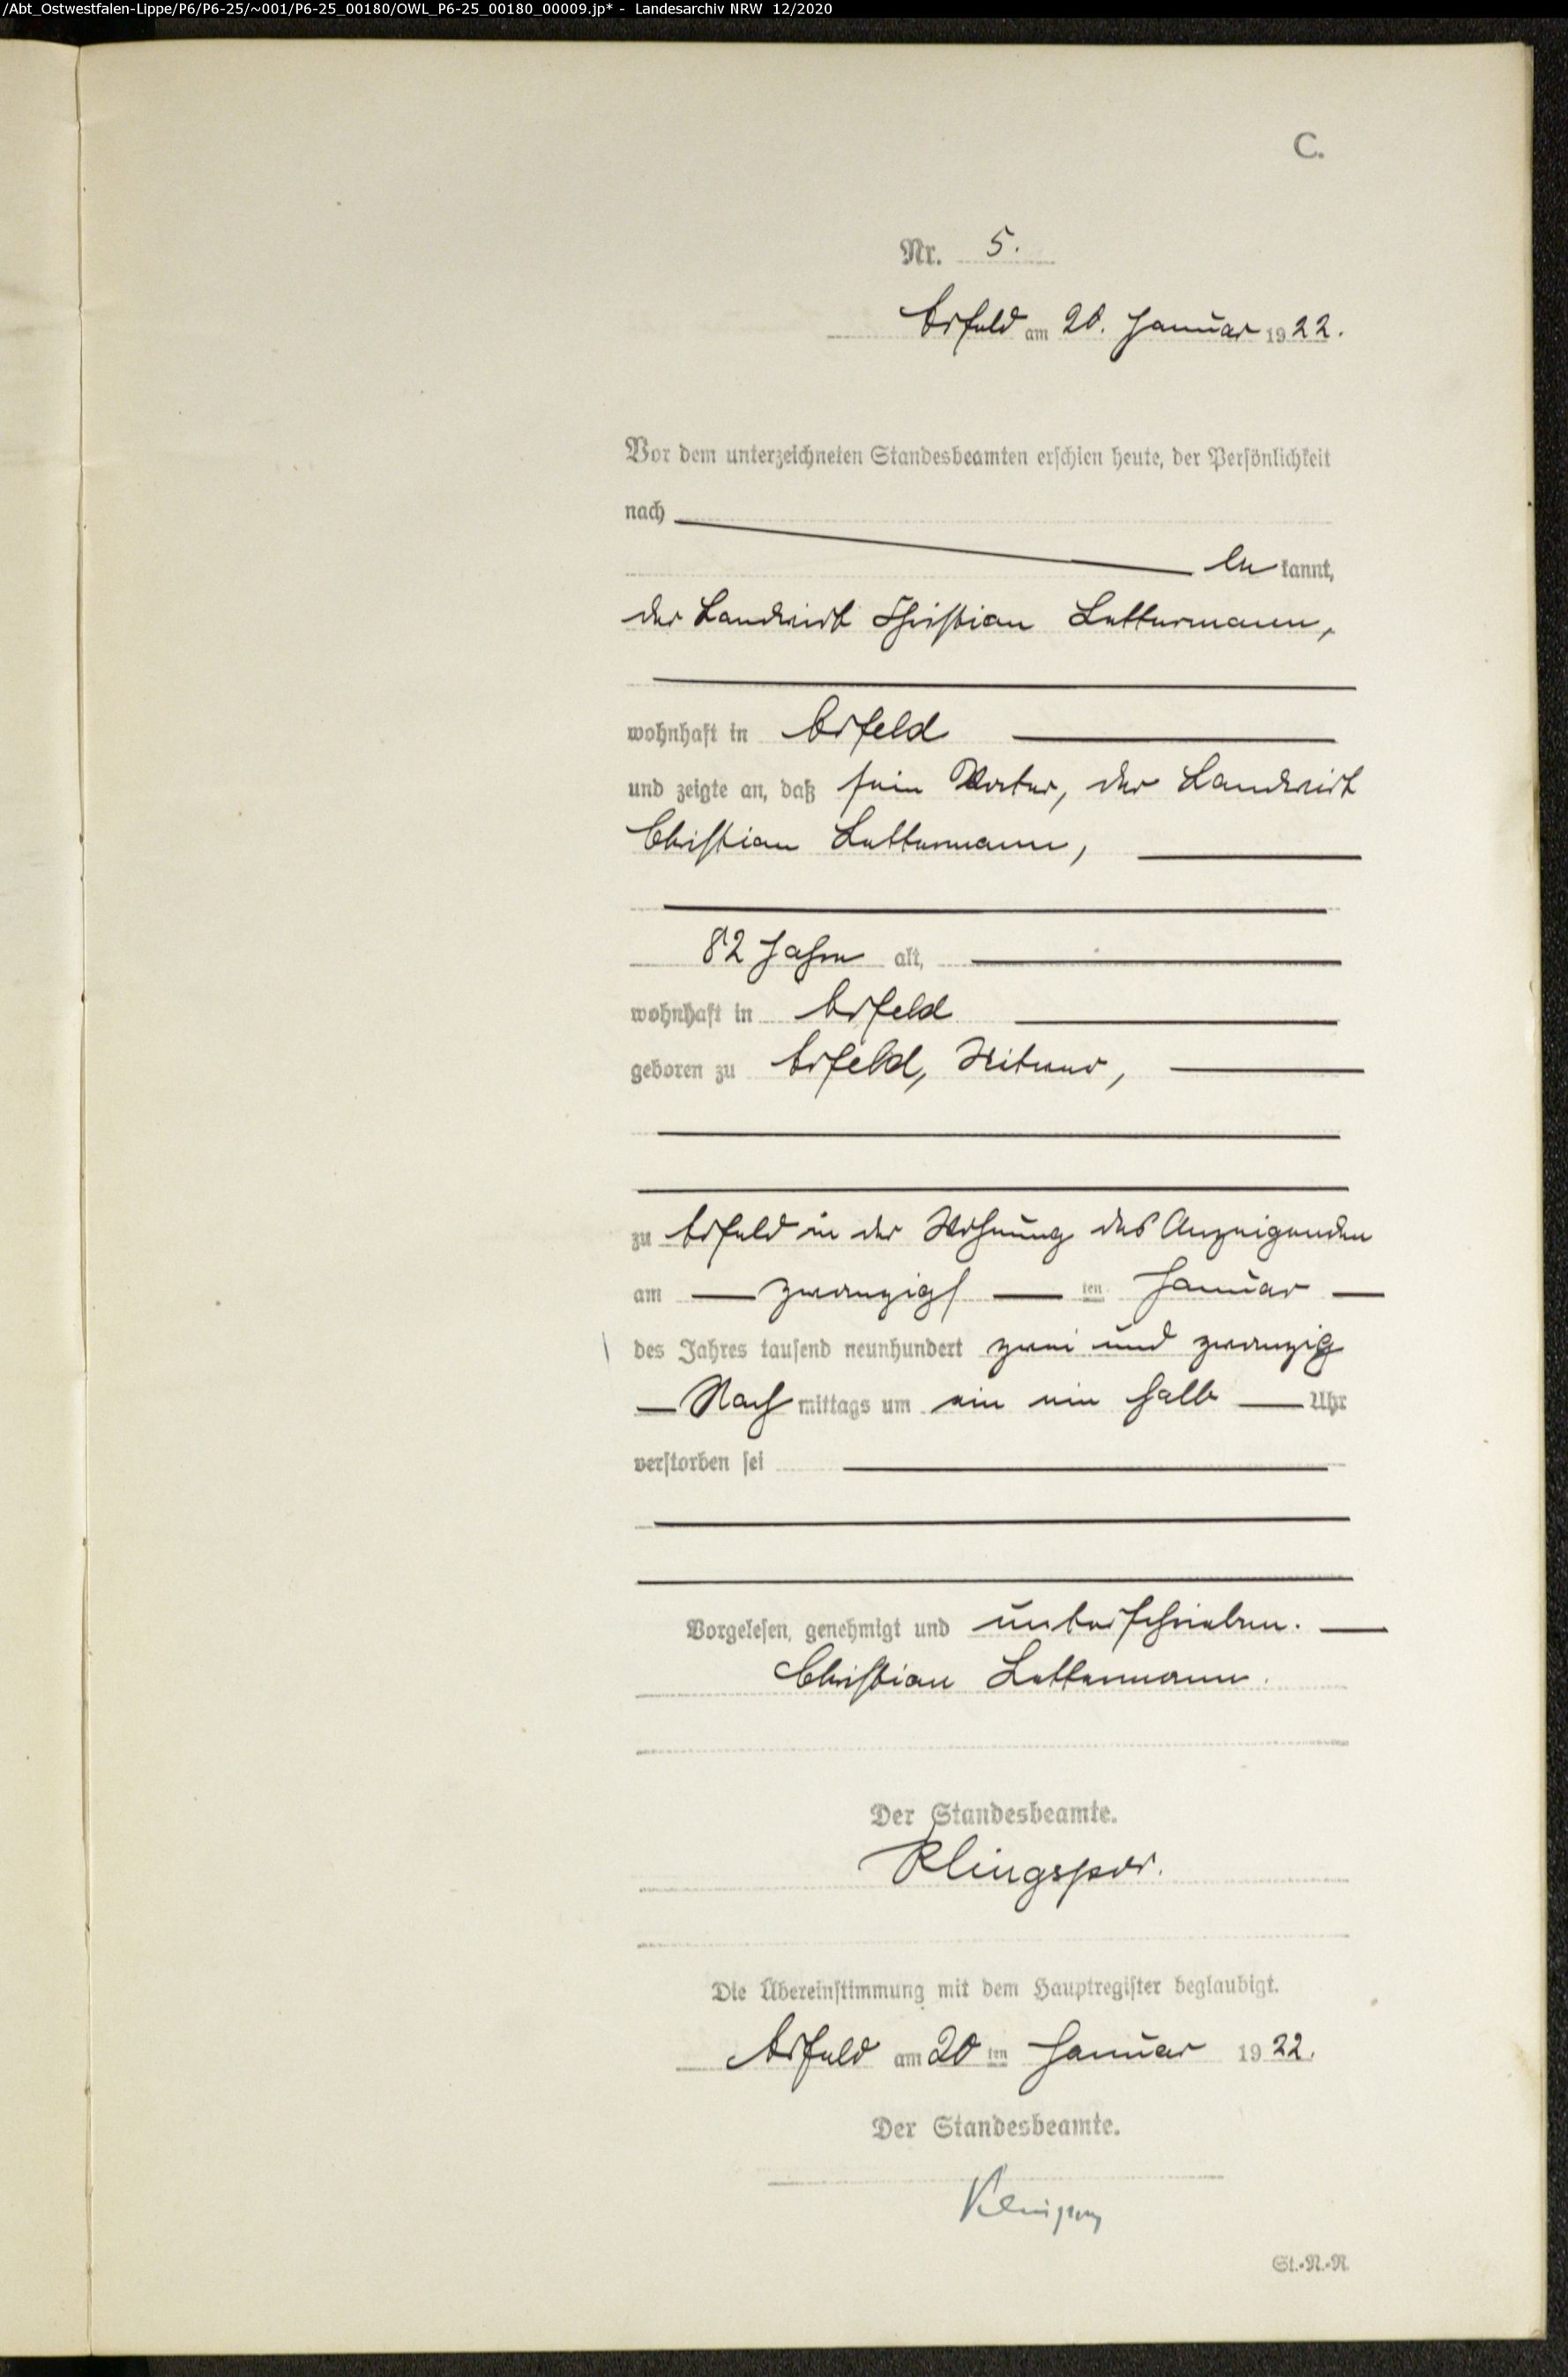 /Abt_Ostwestfalen-Lippe/P6/P6-25/~001/P6-25_00180/OWL_P6-25_00180_00009.jp* - Landesarchiv NRW 12/2020
C.
Nr. 5.
Erfeld am 20. Januar 1922.
Vor dem unterzeichneten Standesbeamten erschien heute, der Persönlichkeit
nach
be kannt,
der Landwirt Christian Lettermann,
wohnhaft in Erfeld
und zeigte an, daß sein Vater, der Landwirt
Christian Lettermann,
82 Jahre alt,
wohnhaft in Erfeld
geboren zu Erfeld, Witwer,
zu Erfeld in der Wohnung des Anzeigenden
am zwanzigs ten Januar
des Jahres tausend neunhundert zwei und zwanzig
Nach mittags um ein ein halb Uhr
verstorben sei
Vorgelesen, genehmigt und unterschrieben.
Christian Lettermann.
Der Standesbeamte.
Klingspor.
Die Übereinstimmung mit dem Hauptregister beglaubigt.
Erfeld am 20 ten Januar 1922.
Der Standesbeamte.
St.-N.-R.